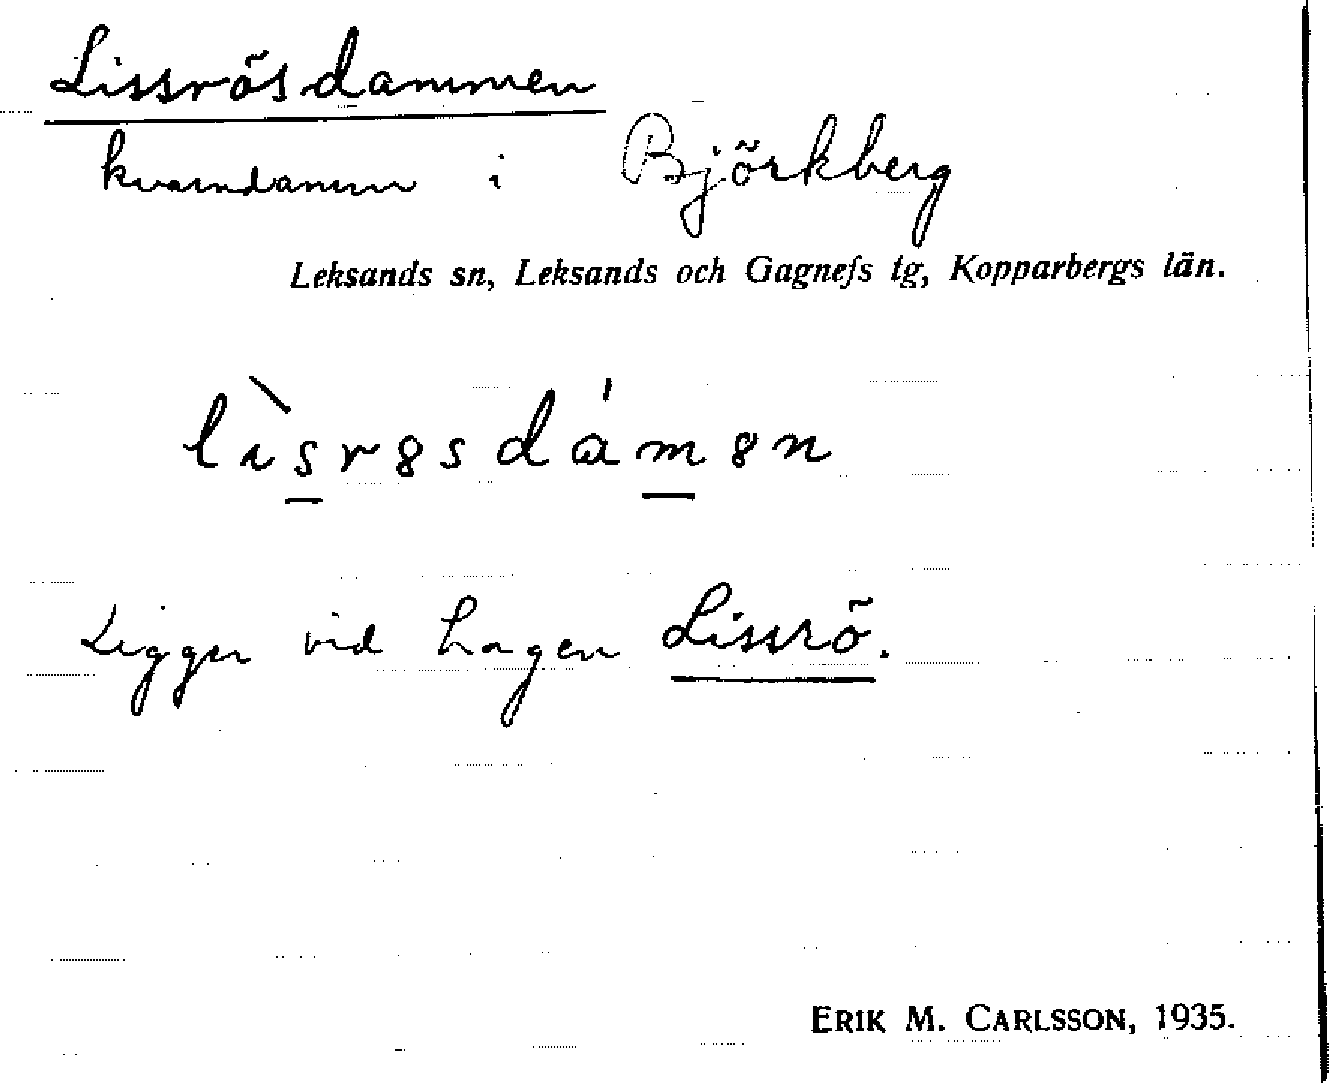 Lissrösdammen
kvarndamm i Björkberg
Leksands sn, Leksands och Gagnefs tg, Kopparbergs län.
lìsr8sdám8n
Ligger vid hagen Lissrö.
ERIK M. CARLSSON, 1935.